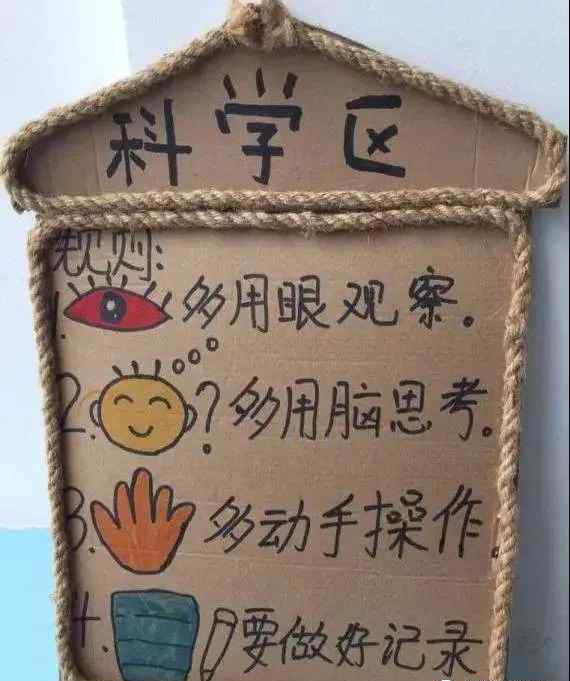 科学区
规则:
1. 多用眼观察。
2. ? 多用脑思考。
3. 多动手操作.
4. 要做好记录